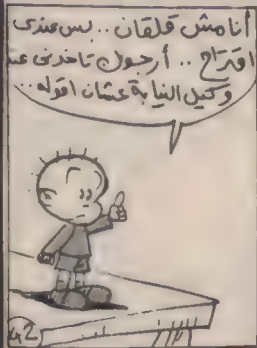 أنا مش قلقان .. بس عندى
اقتراح .. أرجوك تاخدنى عند
وكيل النيابة عشان اقوله ...
42